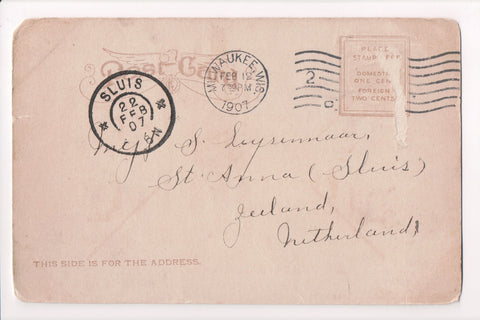 Post Card
PLACE
STAMP HERE
DOMESTIC
ONE CENT
FOREIGN
TWO CENTS
MILWAUKEE, WIS.
FEB 12
PM
1907
2
SLUIS
22
FEB
07
S.
St. Anna (Sluis)
Zeeland,
Netherland,
THIS SIDE IS FOR THE ADDRESS.